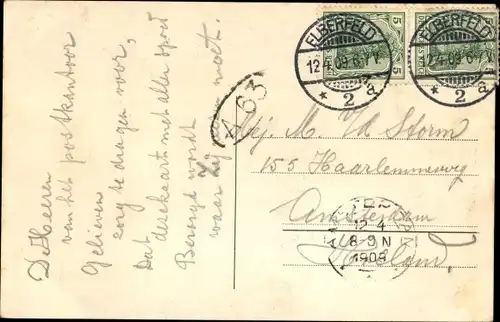 De Heeren
van het postkantoor
Gelieven
zorg te dragen voor,
Dat deze kaart met aller spoed
Bezorgd wordt
waar zij wezen moet.
163
ELBERFELD
12.4.09.6-7V.
* 2 a
ELBERFELD
12.4.09.6-7V.
* 2 a
5
5
Mej. M. v/d Storm
155 Haarlemmerweg
Amsterdam
Holland,
12-4
8-9 N
1909